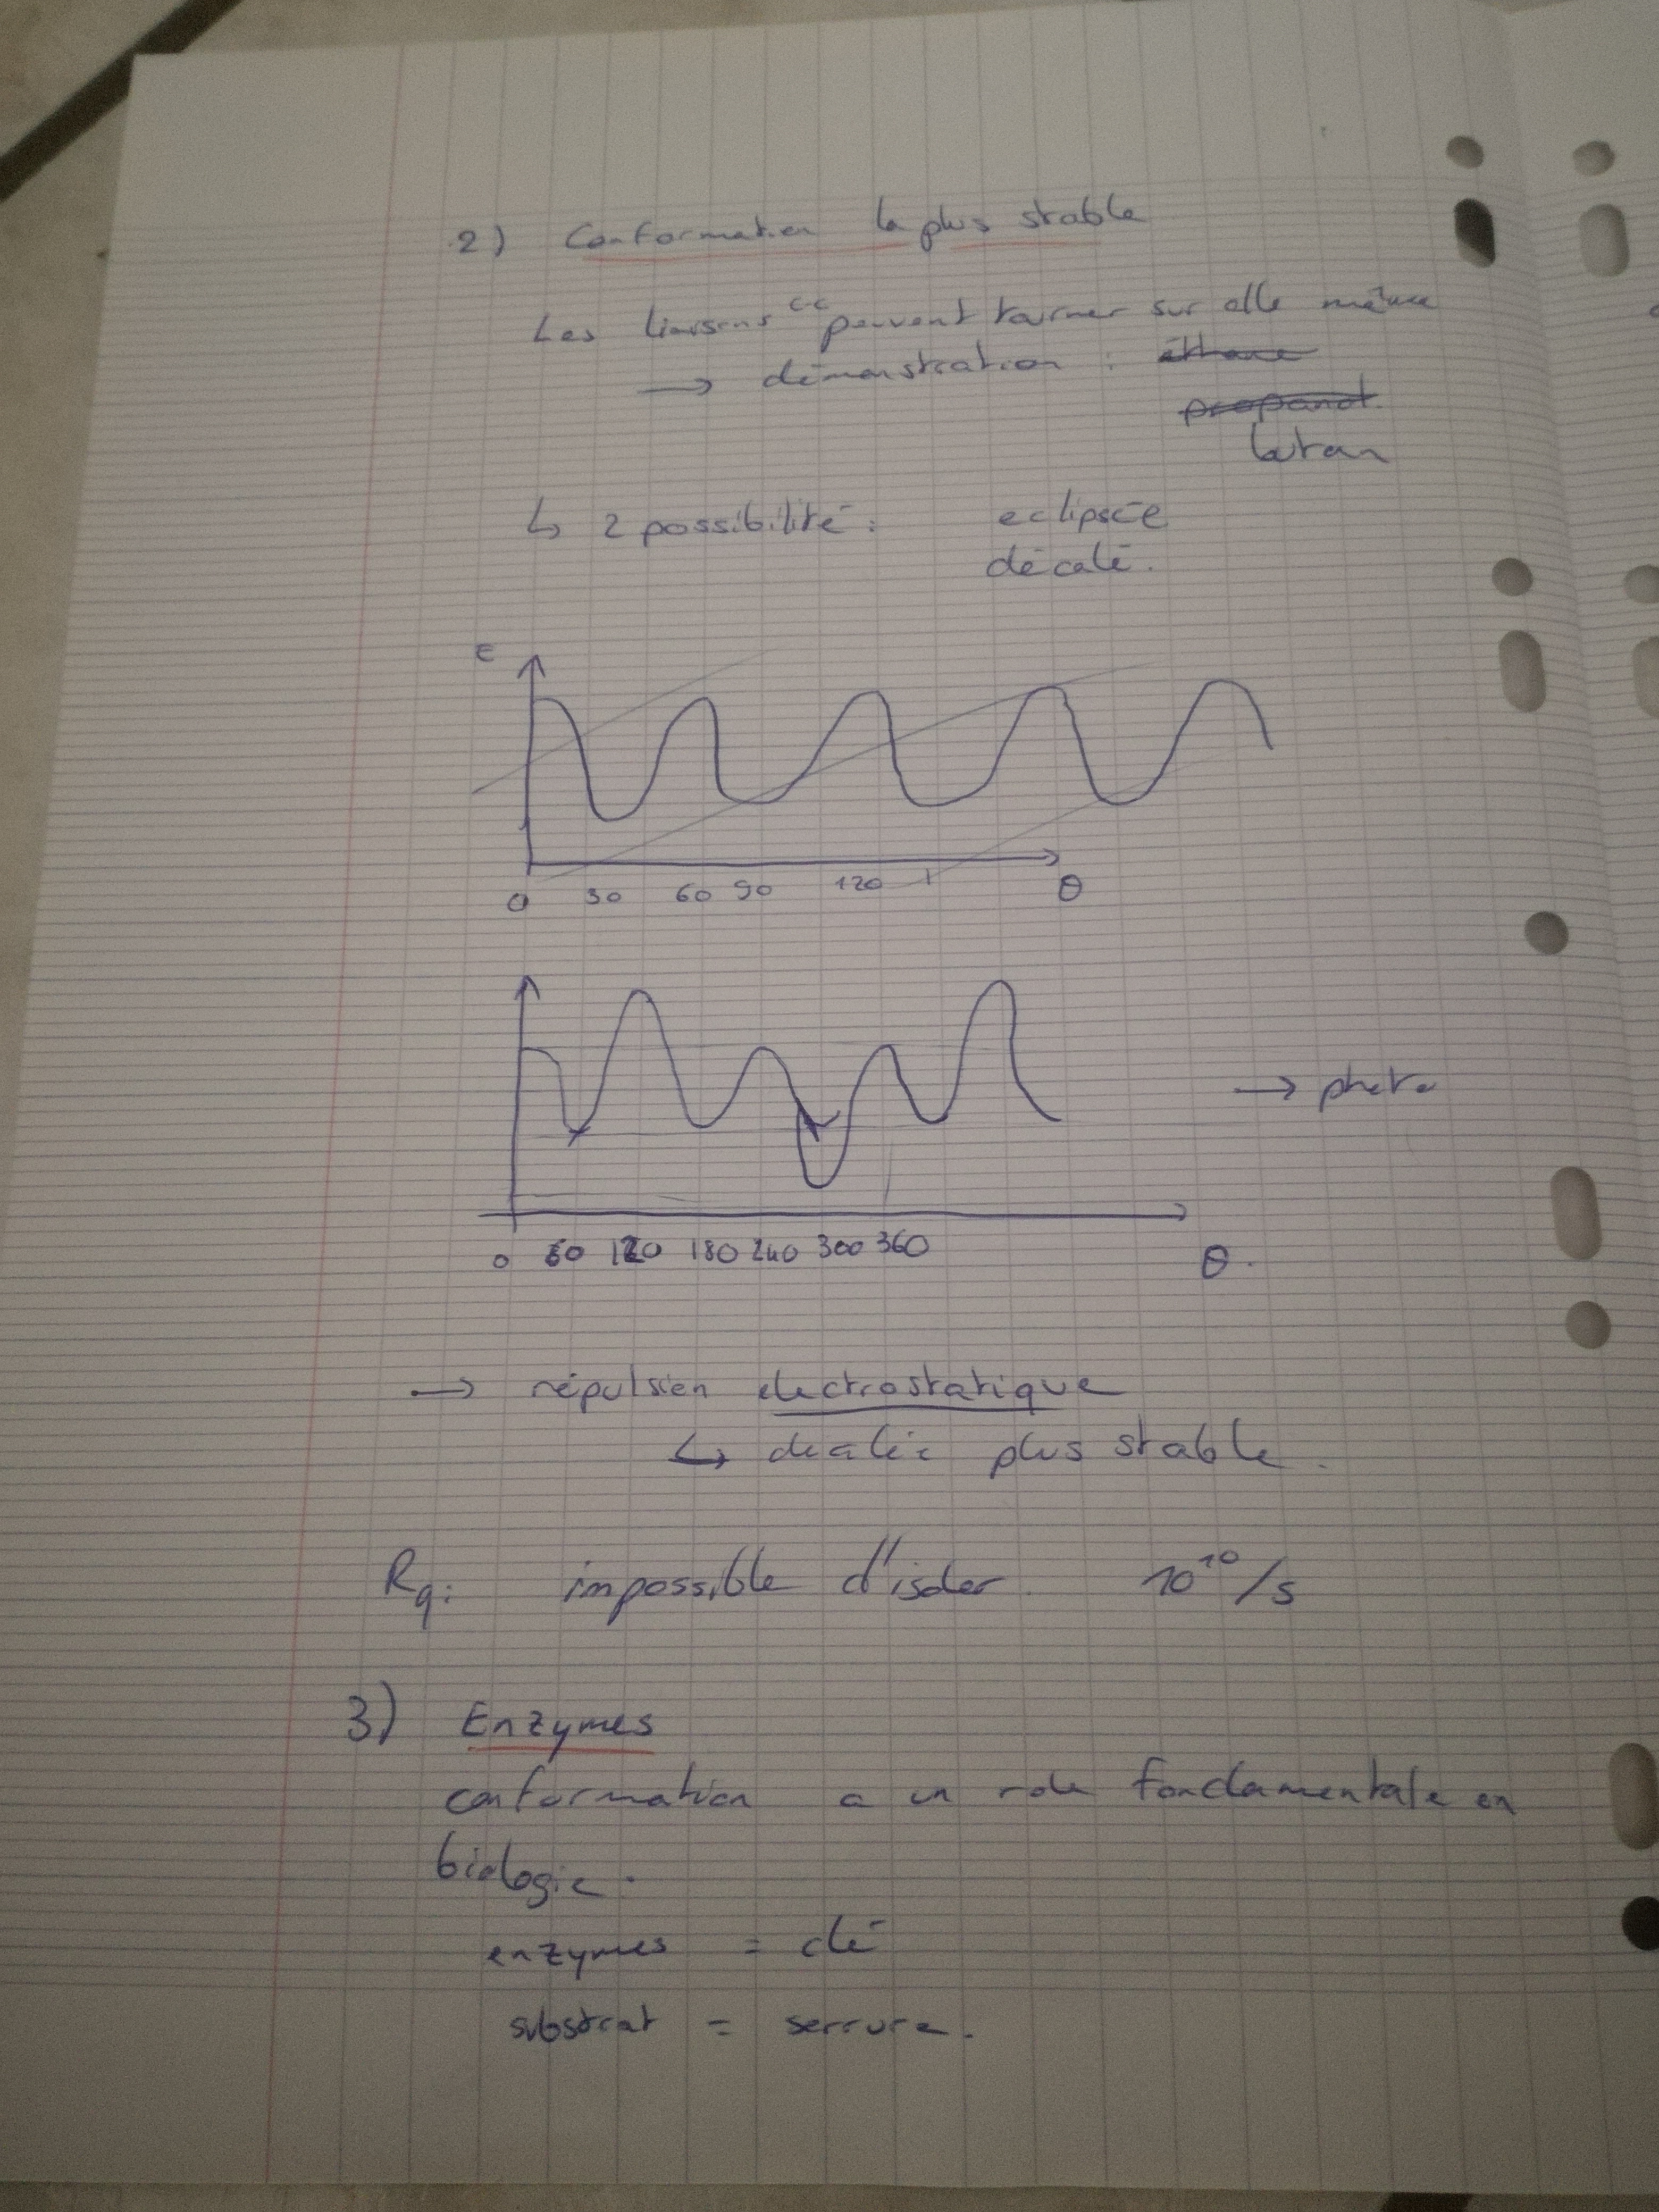 2) Conformation la plus stable
Les liaisons C-C peuvent tourner sur elle même
→ démonstration : éthane
propanol
butan
↳ 2 possibilité : eclipsée
décalé.
E
0 30 60 90 120 θ
→ photo
0 60 120 180 240 300 360 θ.
→ répulsion electrostatique
↳ décalée plus stable.
Rq: impossible d'isoler. 10¹⁰/s
3) Enzymes
conformation a un role fondamentale en
biologie.
enzymes = clé
substrat = serrure.